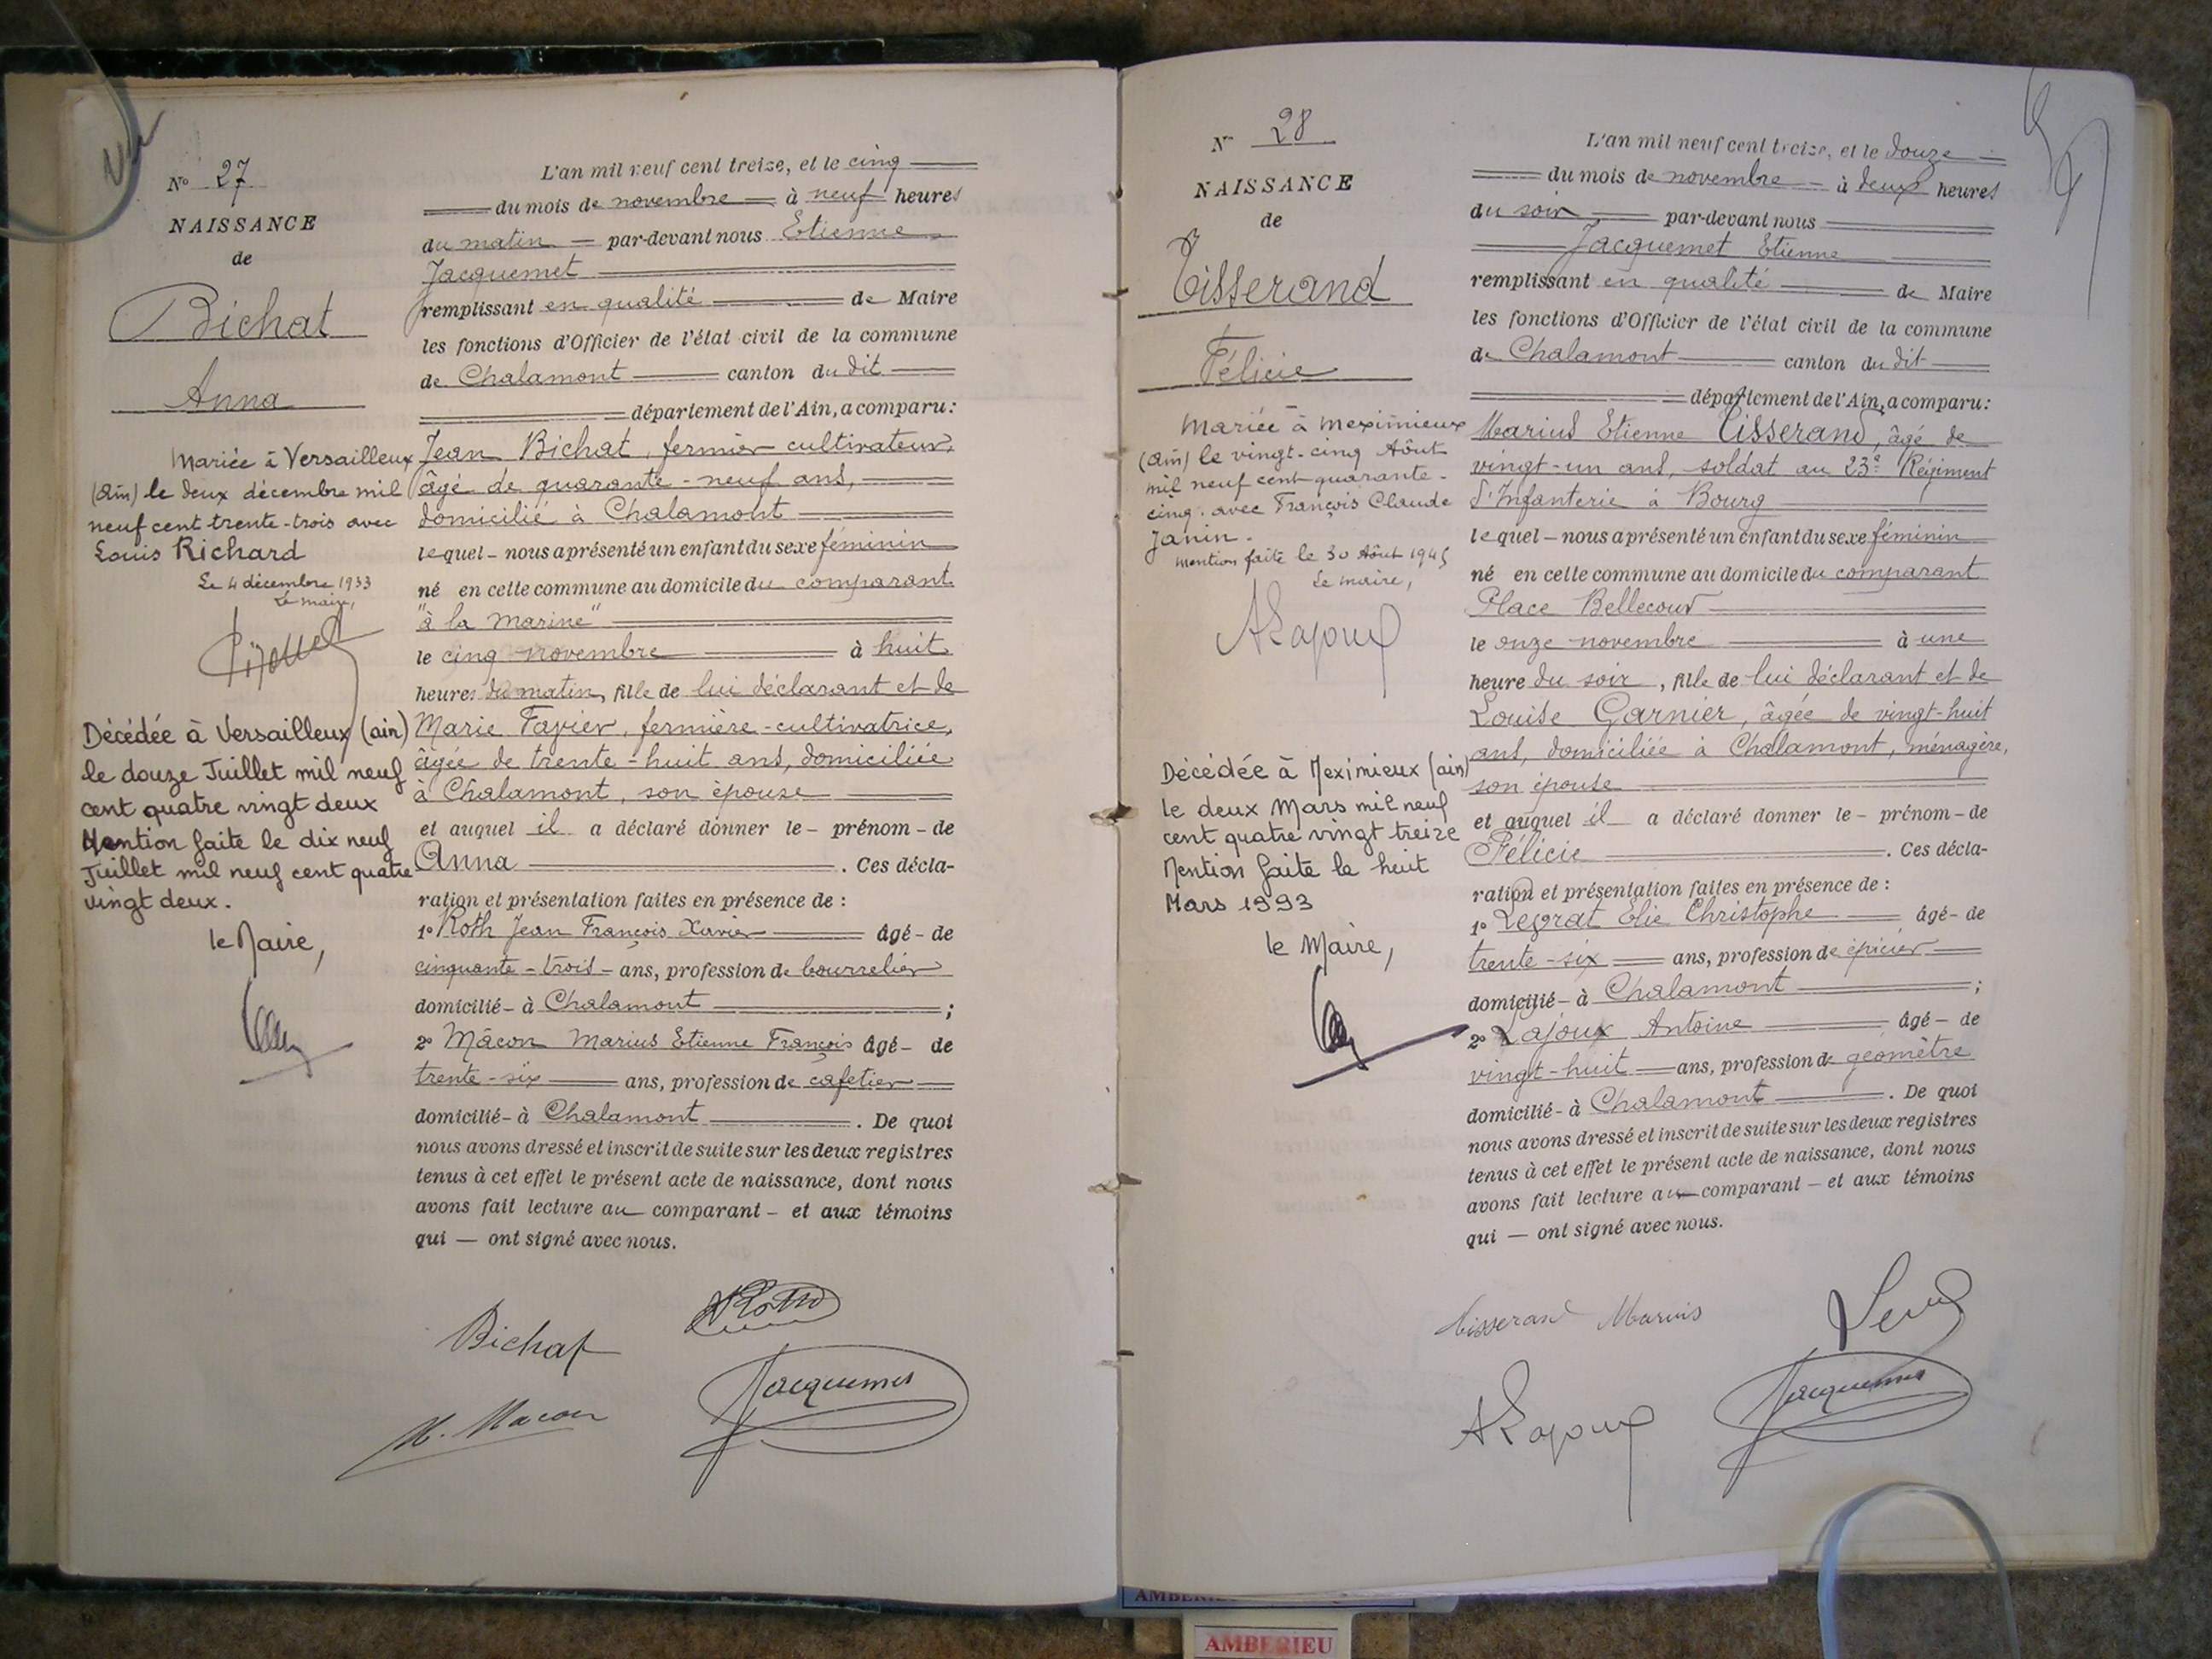 N° 27
NAISSANCE
de
Bichat
Anna
Mariée à Versailleux
(Ain) le deux décembre mil
neuf cent trente-trois avec
Louis Richard
Le 4 décembre 1933
Le maire,
Décédée à Versailleux (ain)
le douze Juillet mil neuf
cent quatre vingt deux
Mention faite le dix neuf
Juillet mil neuf cent quatre
vingt deux.
le Maire,
L'an mil neuf cent treize, et le cinq
du mois de novembre à neuf heures
du matin par-devant nous Etienne
Jacquemet
remplissant en qualité de Maire
les fonctions d'Officier de l'état civil de la commune
de Chalamont canton du dit
département de l'Ain, a comparu:
Jean Bichat, fermier cultivateur,
âgé de quarante-neuf ans,
domicilié à Chalamont
lequel – nous a présenté un enfant du sexe féminin
né en cette commune au domicile du comparant
"à la Marine"
le cinq novembre à huit
heures du matin, fille de lui déclarant et de
Marie Favier, fermière-cultivatrice,
âgée de trente-huit ans, domiciliée
à Chalamont, son épouse
et auquel il a déclaré donner le – prénom – de
Anna. Ces décla-
ration et présentation faites en présence de :
1° Roth Jean François Xavier âgé – de
cinquante-trois – ans, profession de bourrelier
domicilié – à Chalamont ;
2° Mâcon Marius Etienne François âgé – de
trente-six ans, profession de cafetier
domicilié – à Chalamont. De quoi
nous avons dressé et inscrit de suite sur les deux registres
tenus à cet effet le présent acte de naissance, dont nous
avons fait lecture au comparant – et aux témoins
qui — ont signé avec nous.
Bichat
M. Macon
Jacquemet
N° 28
NAISSANCE
de
Tisserand
Félicie
Mariée à Meximieux
(Ain) le vingt-cinq Aôut
mil neuf cent quarante-
cinq. avec François Claude
Janin.
Mention faite le 30 Aôut 1945
Le maire,
ALajoux
Décédée à Meximieux (ain)
le deux Mars mil neuf
cent quatre vingt treize
Mention faite le huit
Mars 1993
le Maire,
L'an mil neuf cent treize, et le douze
du mois de novembre à deux heures
du soir par-devant nous
Jacquemet Etienne
remplissant en qualité de Maire
les fonctions d'Officier de l'état civil de la commune
de Chalamont canton du dit
département de l'Ain, a comparu:
Marius Etienne Tisserand, âgé de
vingt-un ans, soldat au 23e Régiment
d'Infanterie à Bourg
lequel – nous a présenté un enfant du sexe féminin
né en cette commune au domicile du comparant
Place Bellecour
le onze novembre à une
heure du soir, fille de lui déclarant et de
Louise Garnier, âgée de vingt-huit
ans, domiciliée à Chalamont, ménagère,
son épouse
et auquel il a déclaré donner le – prénom – de
Félicie. Ces décla-
ration et présentation faites en présence de :
1° Elie Christophe âgé – de
trente-six ans, profession de épicier
domicilié – à Chalamont ;
2° Lajoux Antoine âgé – de
vingt-huit ans, profession de géomètre
domicilié – à Chalamont. De quoi
nous avons dressé et inscrit de suite sur les deux registres
tenus à cet effet le présent acte de naissance, dont nous
avons fait lecture au comparant – et aux témoins
qui — ont signé avec nous.
Tisserand Marius
ALajoux
Jacquemet
AMBERIEU